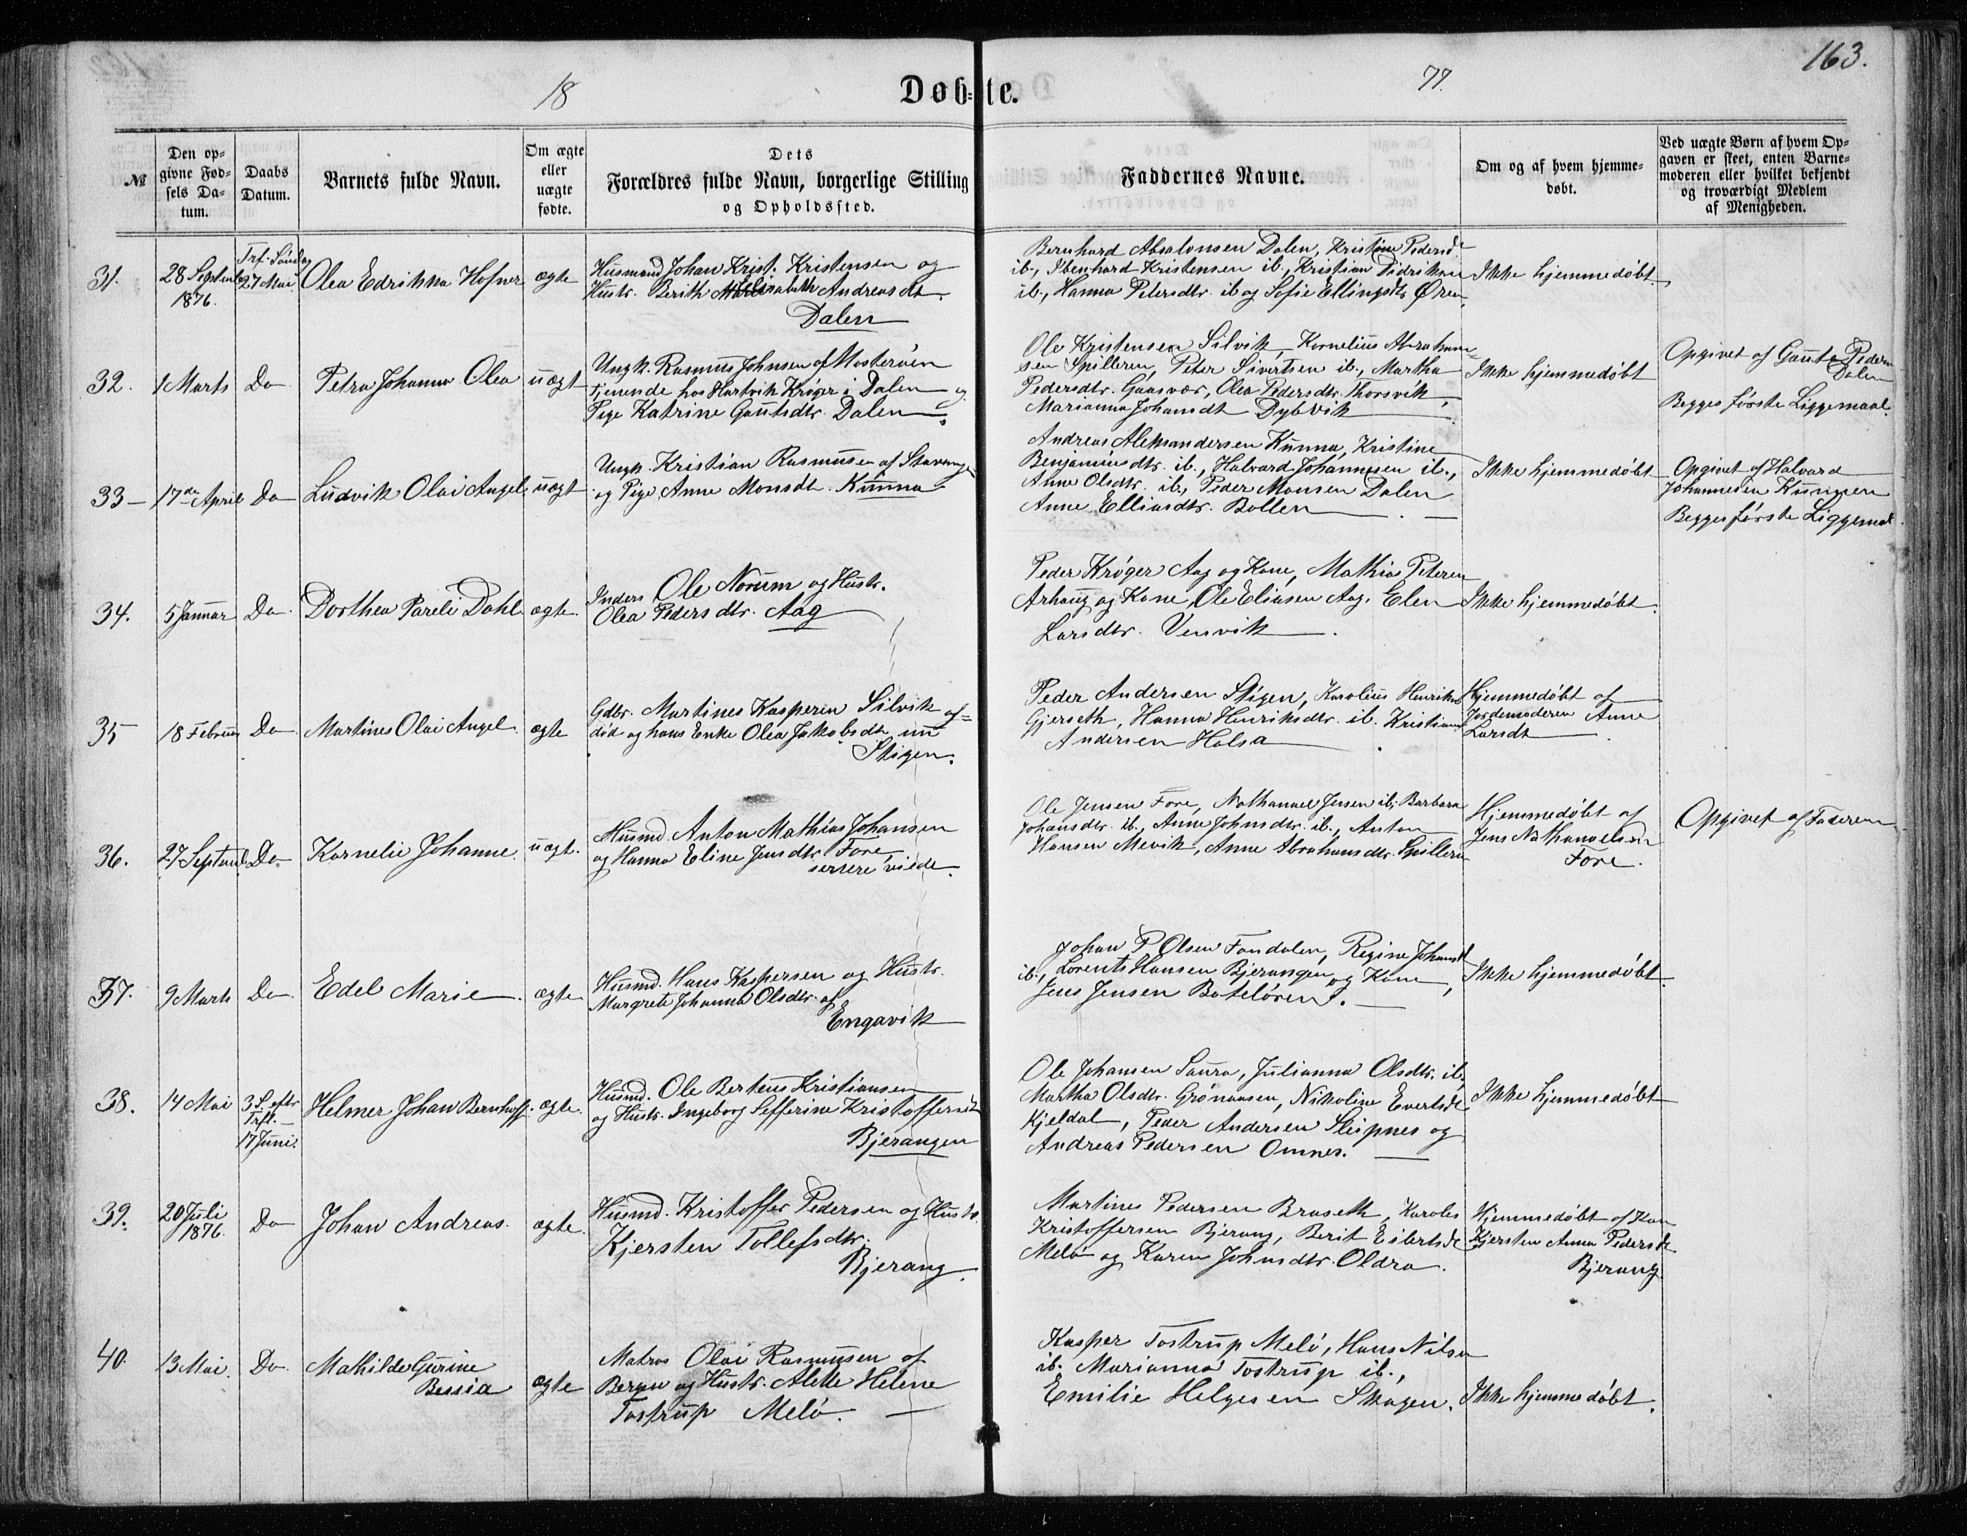 163.
18
Døbte.
77.
№
Den op-
givne Fød-
sels Da-
tum.
Daabs
Datum.
Barnets fulde Navn.
Om ægte
eller
uægte
fødte.
Dets
Forældres fulde Navn, borgerlige Stilling
og Opholdssted.
Faddernes Navne.
Om og af hvem hjemme-
døbt.
Ved uægte Børn af hvem Op-
gaven er skeet, enten Barne-
moderen eller hvilket bekjendt
og troværdigt Medlem
af Menigheden.
31.
28 Septemb
1876.
Trf. Søndag
27 Mai
Olea Edrikka Hofner
ægte
Husmand Johan Krist. Kristensen og
Hustr. Berith Elisabeth Andreasdt.
Dalen
Bernhard Absalonsen Dalen, Kristine Pedersdt
ib., Ibenhard Kristensen ib., Kristian Didriksen
ib., Hanna Petersdtr. ib og Sofie Ellingsdtr Øren.
Ikke hjemmedøbt.
32.
1 Marts
Do
Petra Johanna Olea
uægt
Ungk. Rasmus Johnsen af Mosterøen
tjenende hos Hartvik Krøger i Dalen og
Pige Katrine Gautsdtr. Dalen.
Ole Kristensen Silvik, Kornelius Abraham-
sen Spilleren, Peter Sivertsen ib., Martha
Pedersdtr. Gaasvær, Olea Pedersdtr. Thorsvik,
Marianna Johansdt Dybvik
Ikke hjemmedøbt
Opgivet af Gaute Pedersen
Dalen
Begges første Liggemaal.
33
17de April
Do
Ludvik Olai Angel.
uægt
Ungk. Kristian Rasmusen af Stavanger
og Pige Anne Monsdt. Kunna
Andreas Aleksandersen Kunna, Kristine
Benjaminsdtr. ib., Halvard Johannesen ib.,
Anne Olsdtr. ib., Peder Monsen Dalen
Anne Elliasdtr. Bollen
Ikke hjemmedøbt
Opgivet af Halvard
Johannesen Kunna
Begges første Liggemaal
34.
5 Januar
Do.
Dorthea Pareli Dahl.
ægte.
Inders Ole Norum og Hustr.
Olea Pedersdtr. Aag
Peder Krøger Aag og Kone, Mathias Petersen
Arhaug og Kone, Ole Eliasen Aag. Elen
Larsdtr. Venvik.
Ikke hjemmedøbt.
35
18 Februar
Do
Martines Olai Angel.
ægte
Gdbr. Martines Kaspersen Silvik af-
død og hans Enke Olea Jakobsdt. nu
Stigen.
Peder Andersen Stigen, Karolius Henriks
Gjerseth, Hanna Henriksdtr. ib. Kristiane
Andersen Halsa
Hjemmedøbt af
Jordemoderen Anne
Larsdt
36.
27 Septemb.
Do
Kornelie Johanne.
uægt.
Husmd. Anton Mathias Johansen
og Hanna Eline Jensdtr. Fore
senere viede.
Ole Jensen Fore, Nathanael Jensen ib., Barbara
Johansdtr. ib., Anne Johnsdtr. ib., Anton
Hansen Mevik, Anne Abrahamsdtr. Spilleren
Hjemmedøbt af
Jens Nathanaelsen
Fore.
Opgivet af Faderen
37.
9 Marts
Do
Edel Marie
ægte
Husmd. Hans Kaspersen og Hustr.
Margrete Johanna Olsdtr. af
Engavik
Johan P. Olsen Fondalen, Regine Johansdt
ib., Lorents Hansen Bjerangen og Kone,
Jens Jensen Boteløren.
Ikke hjemmedøbt.
38.
14 Mai
3 S. eftr
Trft.
17 Juni.
Helmer Johan Bernhoff.
ægte.
Husmd. Ole Berteus Kristiansen
og Hustr. Ingeborg Sefferine Kristoffersdt
Bjerangen
Ole Johansen Saura, Julianna Olsdtr. ib.
Martha Olsdtr. Grønaasen, Nikoline Evertsdt
Kjeldal, Peder Andersen Sleipnes og
Andreas Pedersen Omnes.
Ikke hjemmedøbt
39.
20 Juli
1876.
Do
Johan Andreas.
ægte.
Husmd. Kristoffer Pedersen og Hustr.
Kjersten Tollefsdtr.
Bjerang.
Martines Pedersen Braseth, Karoles
Kristoffersen Bjerang, Berit Eilertsdt
Melø og Karen Johnsdtr. Oldra.
Hjemmedøbt af Kone
Kjersten Anna Pedersdt
Bjerang.
40.
13 Mai.
Do
Mathilde Gurine
Bessia
ægte
Matros Olai Rasmussen af
Bergen og Hustr. Alette Helene
Tostrup Melø.
Kasper Tostrup Melø, Hans Nilsen
ib. Marianna Tostrup ib.,
Emilie Helgesen Skogen.
Ikke hjemmedøbt.